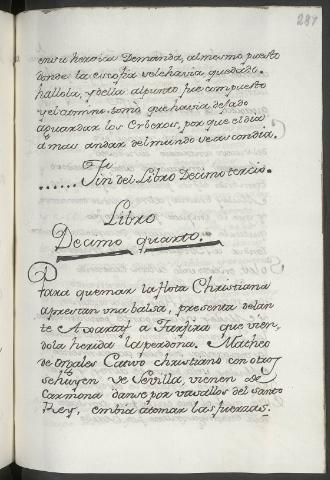 281
en su heroica Demanda, al mesmo puesto
donde la escofia se le havia quedado.
hallola, y della al punto fue compuesto
y el camino tomó que havia dejado
aguardar los
por que el dia
a mas andar del mundo se ascondia.
Fin del Libro Decimo tercio.
Libro
Decimo quarto.
Para quemar la flota Christiana
aprestan una balsa, presenta delan
te Axartaf a Tarfira que vien,
dola herida la perdona. Matheo
de Christiano con otros
de Sevilla, vienen de
Carmona danse por vasallos del santo
Rey, embia a tomar las fuerzas.